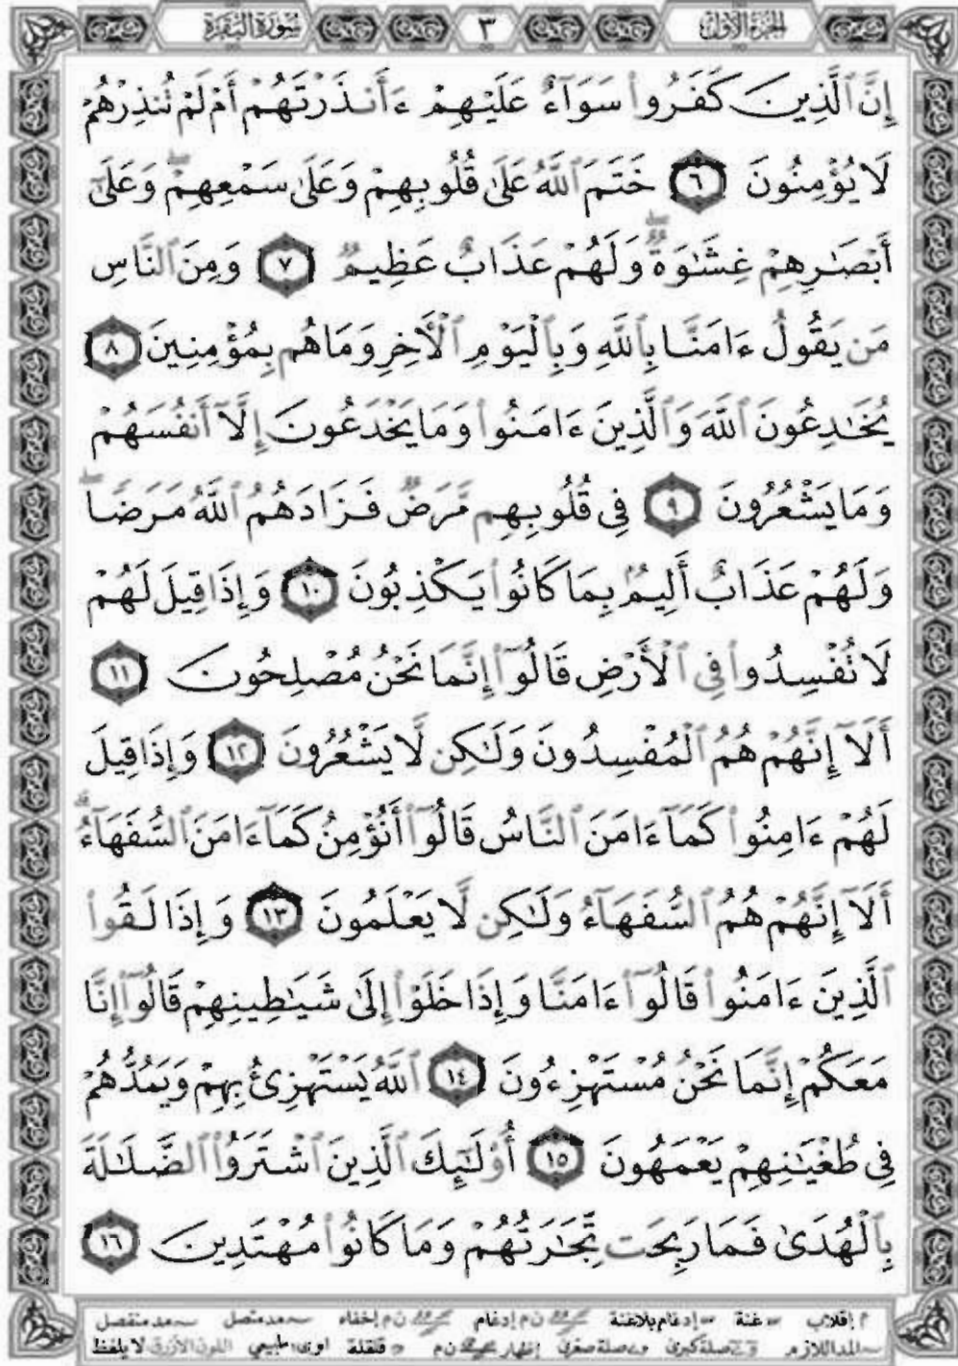 سورة البقرة ٣ الجزء الأول
إِنَّ ٱلَّذِينَ كَفَرُوا۟ سَوَآءٌ عَلَيْهِمْ ءَأَنذَرْتَهُمْ أَمْ لَمْ تُنذِرْهُمْ
لَا يُؤْمِنُونَ ٦ خَتَمَ ٱللَّهُ عَلَىٰ قُلُوبِهِمْ وَعَلَىٰ سَمْعِهِمْ ۖ وَعَلَىٰٓ
أَبْصَـٰرِهِمْ غِشَـٰوَةٌ ۖ وَلَهُمْ عَذَابٌ عَظِيمٌ ٧ وَمِنَ ٱلنَّاسِ
مَن يَقُولُ ءَامَنَّا بِٱللَّهِ وَبِٱلْيَوْمِ ٱلْأَخِرِ وَمَا هُم بِمُؤْمِنِينَ ٨
يُخَـٰدِعُونَ ٱللَّهَ وَٱلَّذِينَ ءَامَنُوا۟ وَمَا يَخْدَعُونَ إِلَّآ أَنفُسَهُمْ
وَمَا يَشْعُرُونَ ٩ فِى قُلُوبِهِم مَّرَضٌ فَزَادَهُمُ ٱللَّهُ مَرَضًا ۖ
وَلَهُمْ عَذَابٌ أَلِيمٌۢ بِمَا كَانُوا۟ يَكْذِبُونَ ١٠ وَإِذَا قِيلَ لَهُمْ
لَا تُفْسِدُوا۟ فِى ٱلْأَرْضِ قَالُوٓا۟ إِنَّمَا نَحْنُ مُصْلِحُونَ ١١
أَلَآ إِنَّهُمْ هُمُ ٱلْمُفْسِدُونَ وَلَـٰكِن لَّا يَشْعُرُونَ ١٢ وَإِذَا قِيلَ
لَهُمْ ءَامِنُوا۟ كَمَآ ءَامَنَ ٱلنَّاسُ قَالُوٓا۟ أَنُؤْمِنُ كَمَآ ءَامَنَ ٱلسُّفَهَآءُ ۗ
أَلَآ إِنَّهُمْ هُمُ ٱلسُّفَهَآءُ وَلَـٰكِن لَّا يَعْلَمُونَ ١٣ وَإِذَا لَقُوا۟
ٱلَّذِينَ ءَامَنُوا۟ قَالُوٓا۟ ءَامَنَّا وَإِذَا خَلَوْا۟ إِلَىٰ شَيَـٰطِينِهِمْ قَالُوٓا۟ إِنَّا
مَعَكُمْ إِنَّمَا نَحْنُ مُسْتَهْزِءُونَ ١٤ ٱللَّهُ يَسْتَهْزِئُ بِهِمْ وَيَمُدُّهُمْ
فِى طُغْيَـٰنِهِمْ يَعْمَهُونَ ١٥ أُو۟لَـٰٓئِكَ ٱلَّذِينَ ٱشْتَرَوُا۟ ٱلضَّلَـٰلَةَ
بِٱلْهُدَىٰ فَمَا رَبِحَت تِّجَـٰرَتُهُمْ وَمَا كَانُوا۟ مُهْتَدِينَ ١٦
م إقلاب غنة إدغام بلا غنة ن م إدغام ن م إخفاء مد متصل مد منفصل
المد اللازم صلة كبرى صلة صغرى إظهار ن م قلقلة اوى طبيعي اللون الأزرق لا يلفظ